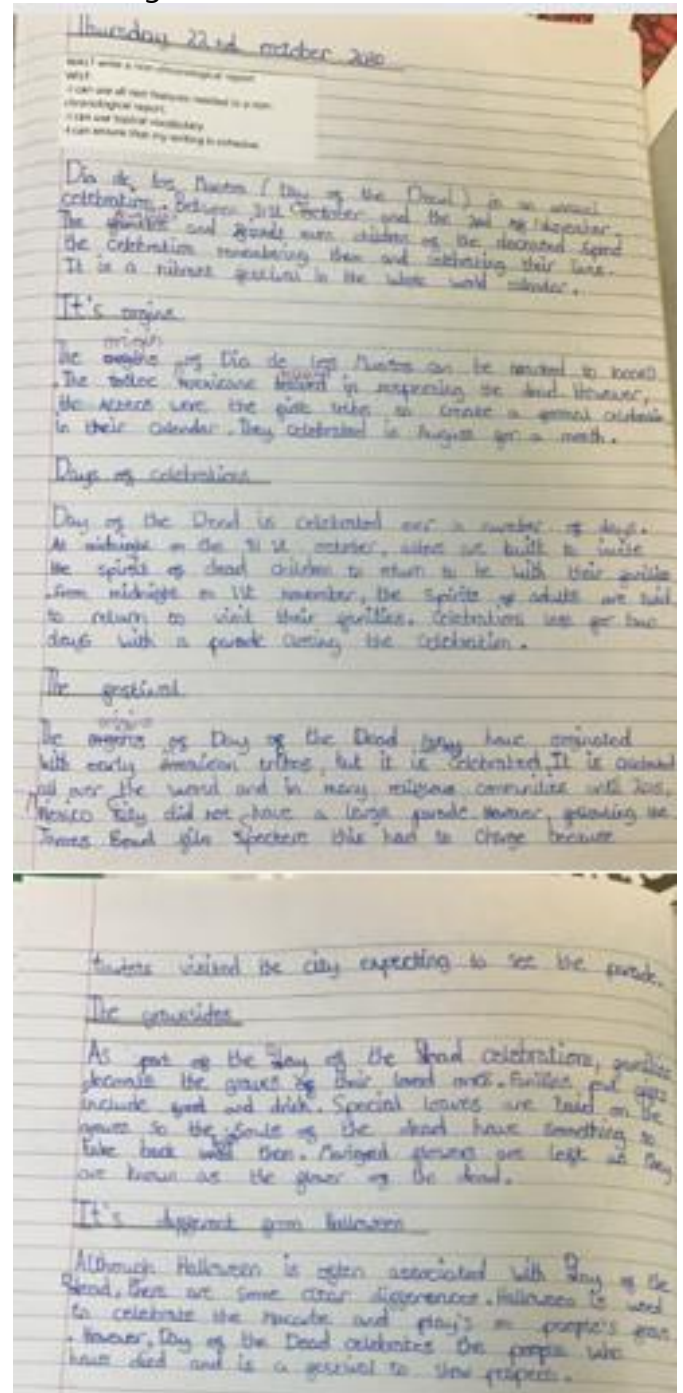 Thursday 22nd october 2020
WALT write a non-chronological report
WILF
-I can use all text features needed in a non-
chronological report.
-I can use topical vocabulary
-I can ensure that my writing is cohesive.
Dia de los Muertos (Day of the Dead) is an annual
celebration. Between 31st october and the 2nd of November.
The families and friends even children of the deceased spend
the celebration remembering them and celebrating their lives.
It is a vibrant festival in the whole world calendar.
It's origins
origin
The of Dia de los Muertos can be
The toltec mexicans in respecting the dead. However,
the Aztecs were the first tribe to create a celebration
in their calendar. They celebrated in August for a month.
Days of celebrations
Day of the Dead is celebrated over a number of days.
At midnight on the 31st october, are built to invite
the spirits of dead children to return to be with their families
. From midnight on 1st november, the spirits of adults are said
to return to visit their families. Celebrations last for two
days with a parade closing the celebration.
The festival
origins
The of Day of the Dead may have originated
with early american tribes, but it is celebrated. It is celebrated
all over the world and in many religious communities until 2015,
Mexico City did not have a large parade. However, following the
James Bond film Spectere this had to change because
tourists visited the city expecting to see the parade.
The gravesides
As part of the Day of the Dead celebrations, families
decorate the graves of their loved ones. Families put gifts
include food and drink. Special loaves are laid on the
graves so the souls of the dead have something to
take back with them. Marigold flowers are left as they
are known as the flower of the dead.
It's different from Halloween
Although Halloween is often associated with Day of the
Dead, there are some clear differences. Halloween is used
to celebrate the macabre and play's on people's fear
. However, Day of the Dead celebrates the people who
have died and is a festival to show respect.